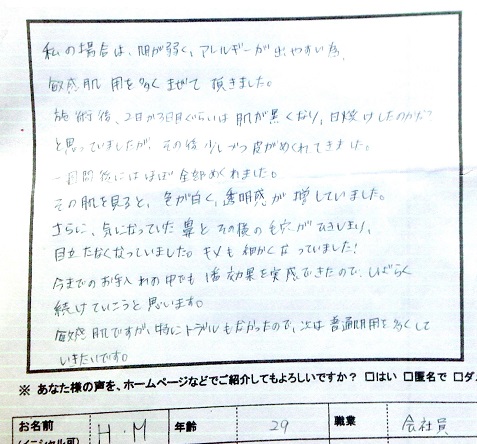 私の場合は、肌が弱く、アレルギーが出やすい為、
敏感肌用を多くまぜて頂きました。
施術後、2日か3日目ぐらいは肌が黒くなり、日焼けしたのかな?
と思っていましたが、その後少しづつ皮がめくれてきました。
一週間後にはほぼ全部めくれました。
その肌を見ると、色が白く、透明感が増していました。
さらに、気になっていた鼻とその横の毛穴がひきしまり、
目立たなくなっていました。キメも細かくなっていました!
今までのお手入れの中でも1番効果を実感できたので、しばらく
続けていこうと思います。
敏感肌ですが、特にトラブルもなかったので、次は普通肌用を多くして
いきたいです。
※ あなた様の声を、ホームページなどでご紹介してもよろしいですか? □はい □匿名で □ダ
お名前 H・M 年齢 29 職業 会社員
(イニシャル可)